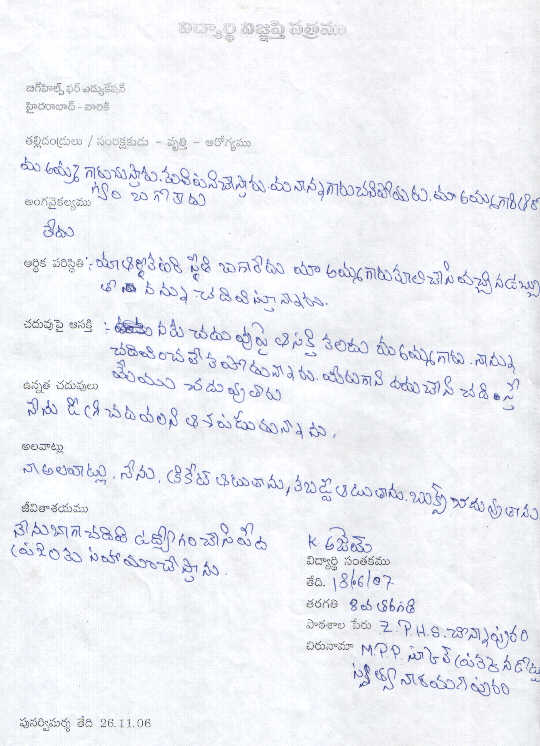 విద్యార్థి విజ్ఞప్తి పత్రము
బిగ్‌హెల్ప్ ఫర్ ఎడ్యుకేషన్
హైదరాబాద్ - వారికి
తల్లిదండ్రులు / సంరక్షకుడు - వృత్తి - ఆరోగ్యము
మా అమ్మ గారు మా నాన్నగారు చనిపోయారు. మా అమ్మగారి
అంగవైకల్యము
లేదు
ఆర్థిక పరిస్థితి :- మా ఆర్థిక పరిస్థితి బాగాలేదు మా అమ్మగారు కూలి చేసి వచ్చిన డబ్బు
తో నన్ను చదివిస్తున్నారు.
చదువుపై ఆసక్తి :- నాకు చదువుపై ఆసక్తి కలదు మా అమ్మగారు నన్ను
చదివించలేక పోతున్నారు. చేసి చదివిస్తే
మేము చదువుతాము
ఉన్నత చదువులు
నేను డిగ్రీ చదవాలని ఆశ పడుతున్నాను.
అలవాట్లు
నా అలవాట్లు. నేను క్రికెట్ ఆడుతాను, కబడ్డీ ఆడుతాను. బుక్స్ చదువుతాను
జీవితాశయము
నేను బాగా చదివి ఉద్యోగం చేసి పేద
ప్రజలకు సహాయం చేస్తాను.
K అజయ్
విద్యార్థి సంతకము
తేది. 18/6/07
తరగతి 8వ తరగతి
పాఠశాల పేరు Z.P.H.S.
చిరునామా M.P.P.
పునర్విమర్శ తేది 26.11.06